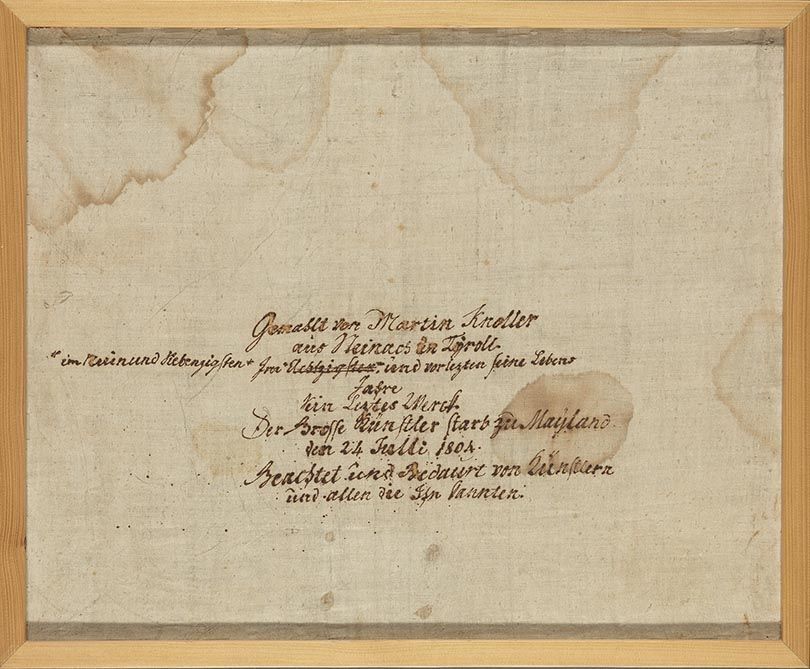 Gemahlt von Martin Knoller
aus Steinach in Tyroll.
* im Neün und Siebenzigsten * Im Achtzigsten, und vorlezten seine Lebens
Jahre
sein Leztes Werck.
Der Grosse Künstler starb zu Mayland.
den 24 Julli 1804.
Beachtet und Bedaurt von Künstlern
und allen die Ihn kannten.